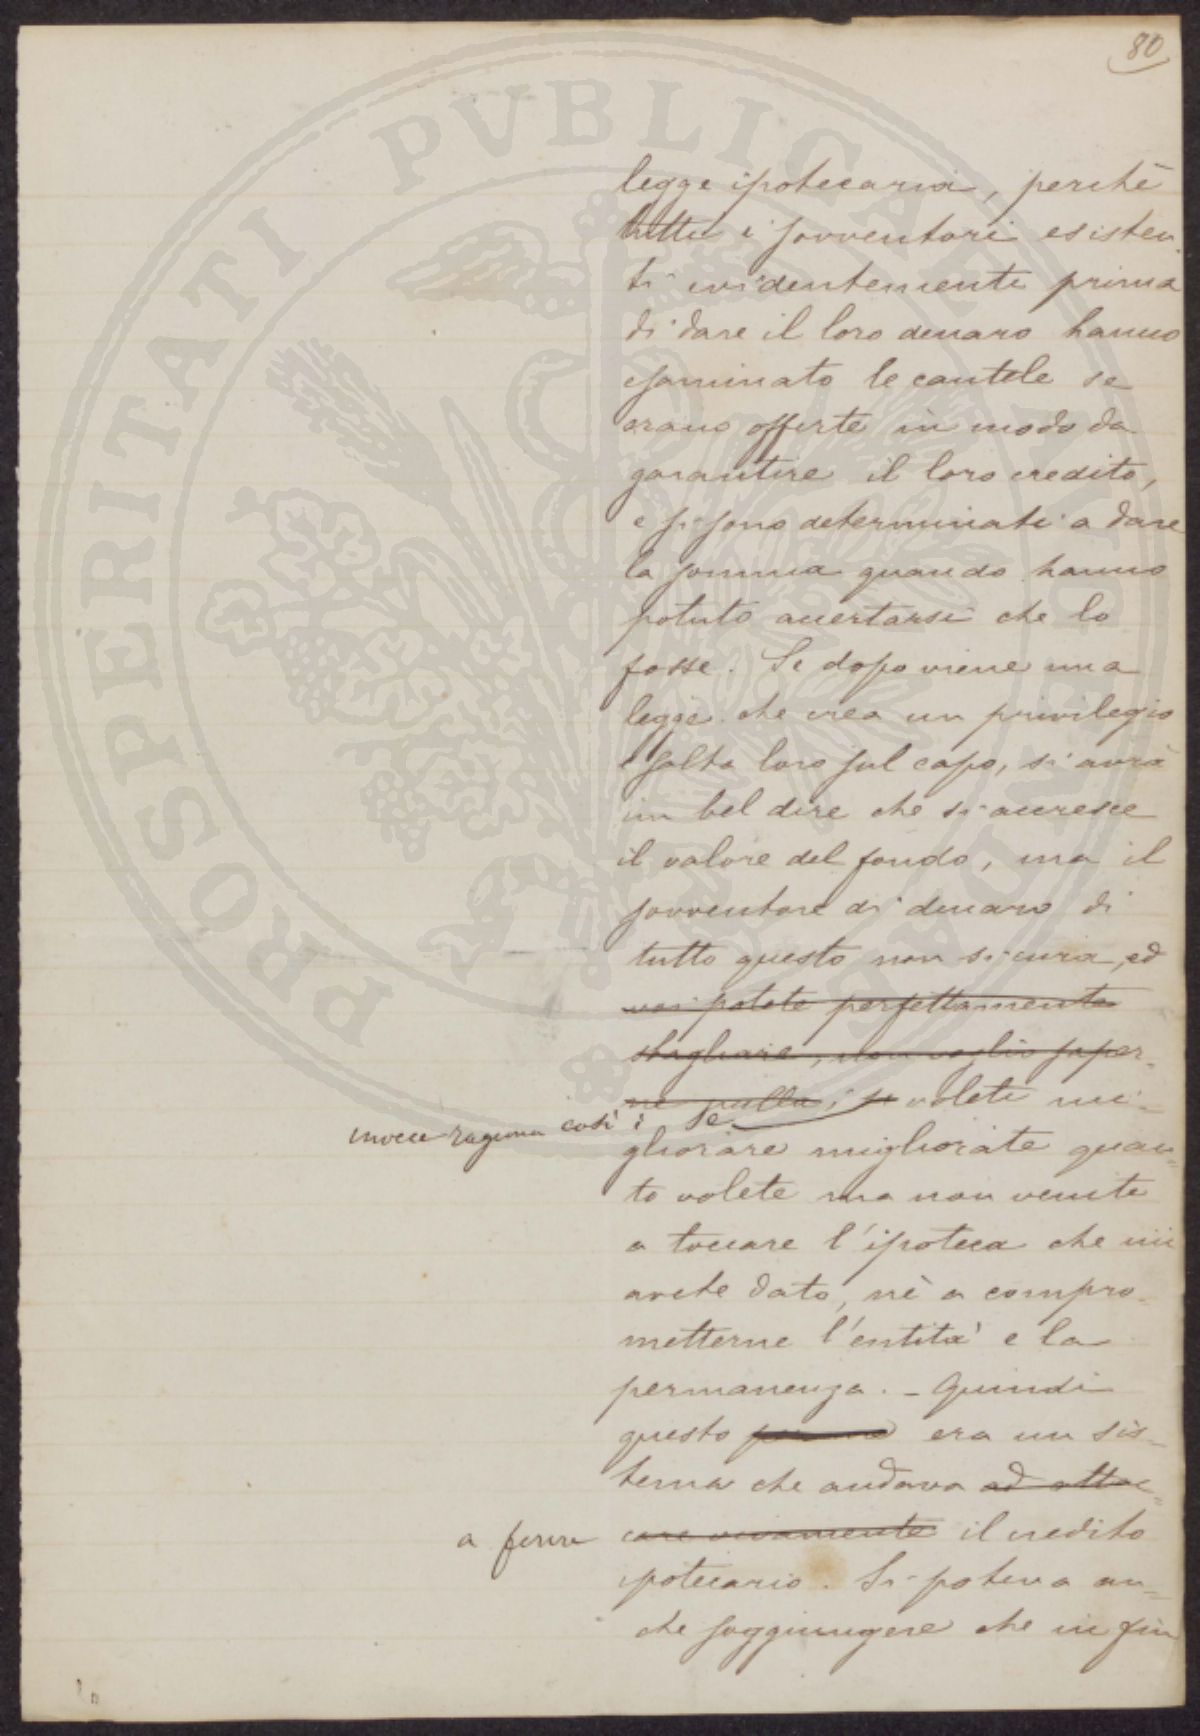 80
legge ipotecaria, perchè
tutti i sovventori esisten-
ti evidentemente prima
di dare il loro denaro hanno
esaminato le cautele se
erano offerte in modo da
garantire il loro credito,
e si sono determinati a dare
la somma quando hanno
potuto accertarsi che lo
fosse. Se dopo viene una
legge che crea un privilegio
e salta loro sul capo, si avrà
un bel dire che si accresce
il valore del fondo, ma il
sovventore di denaro di
tutto questo non si cura, ed
voi potete perfettamente
sbagliare, non voglio saper-
ne nulla; se volete mi-
invece ragiona così: se
gliorare migliorate quan-
to volete ma non venite
a toccare l'ipoteca che mi
avete dato, nè a compro-
metterne l'entità e la
permanenza. - Quindi
questo era un sis-
tema che andava ad attac-
a ferire care vivamente il credito
ipotecario. Si poteva an-
che soggiungere che in fin